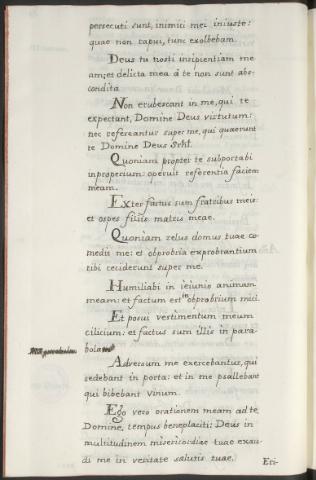 persecuti sunt, inimici mei iniuste:
quae non rapui, tunc exolbebam.
Deus tu nosti insipientiam me
am; et delicta mea á te non sunt abs-
condita
Non erubescant in me, qui te
expectant, Domine Deus virtutum:
nec refereantur super me, qui quaerunt
te Domine Deus
Quoniam propter te subportabi
inproperium: operuit referentia faciem
meam.
Exter factus sum fratribus meis:
et ospes filiis matris meae.
Quoniam zelus domus tuae co
medit me: et obprobria exprobrantium
tibi ceciderunt super me.
Humiliabi in ieiunio animam
meam: et factum est in obprobrium mici.
Et posui vestimentum meum
cilicium: et factus sum illis in para-
bola
Adversum me exercebantur, qui
sedebant in porta: et in me psallebant
qui bibebant vinum.
Ego vero orationem meam ad te,
Domine, tempus beneplaciti: Deus in
multitudinem misericordiae tuae exau
di me in veritate salutis tuae.
Eri-